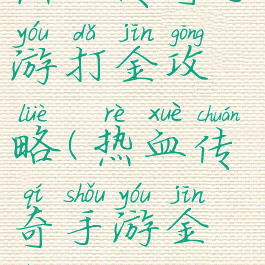 yóu dǎ jīn gōng
游打金攻
lüè rè xuè chuán
略(热血传
qí shǒu yóu jīn
奇手游金